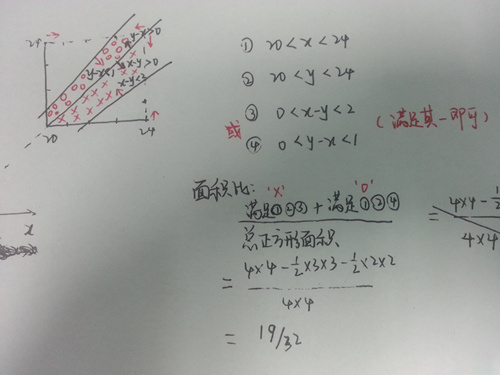 24
y-x>0
y-x<1
x-y>0
x-y<2
20
24
① 20<x<24
② 20<y<24
③ 0<x-y<2
或
(满足其一即可)
④ 0<y-x<1
面积比:
"x"
"o"
满足①②③+满足①②④
总正方形面积
= 4×4-½×3×3-½×2×2
4×4
= 19/32
= 4×4-½
4×4
x